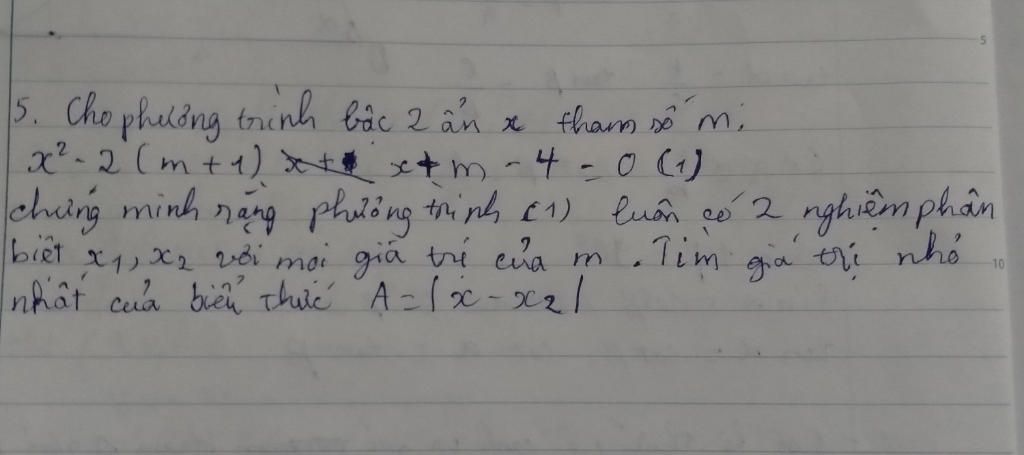 5
5. Cho phương trình bậc 2 ẩn x tham số m:
x² - 2 (m + 1) x + m - 4 = 0 (1)
chứng minh rằng phương trình (1) luôn có 2 nghiệm phân
biệt x₁, x₂ với mọi giá trị của m. Tìm giá trị nhỏ
10
nhất của biểu thức A = |x - x₂|